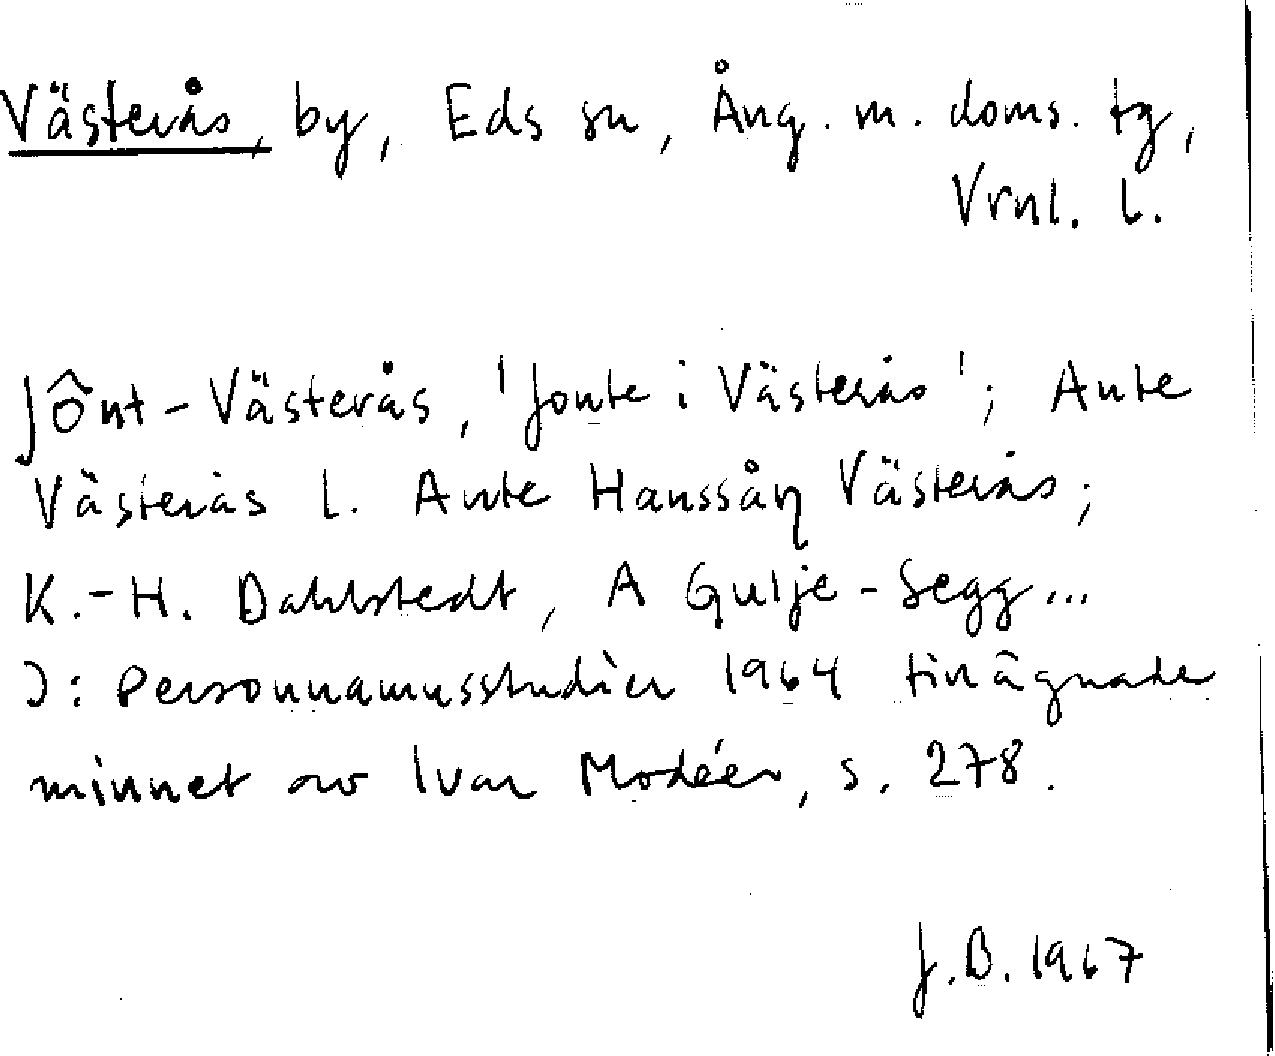 Västerås, by, Eds sn, Ång. m. doms. tg,
Vrnl. l.
Jônt-Västerås, 'Jonte i Västerås'; Ante
Västerås l. Ante Hanssåɳ Västerås;
K.-H. Dahlstedt, A Gulje-Segg...
I: Personnamnsstudier 1964 tillägnade
minnet av Ivar Modéer, s. 278.
J.B. 1967